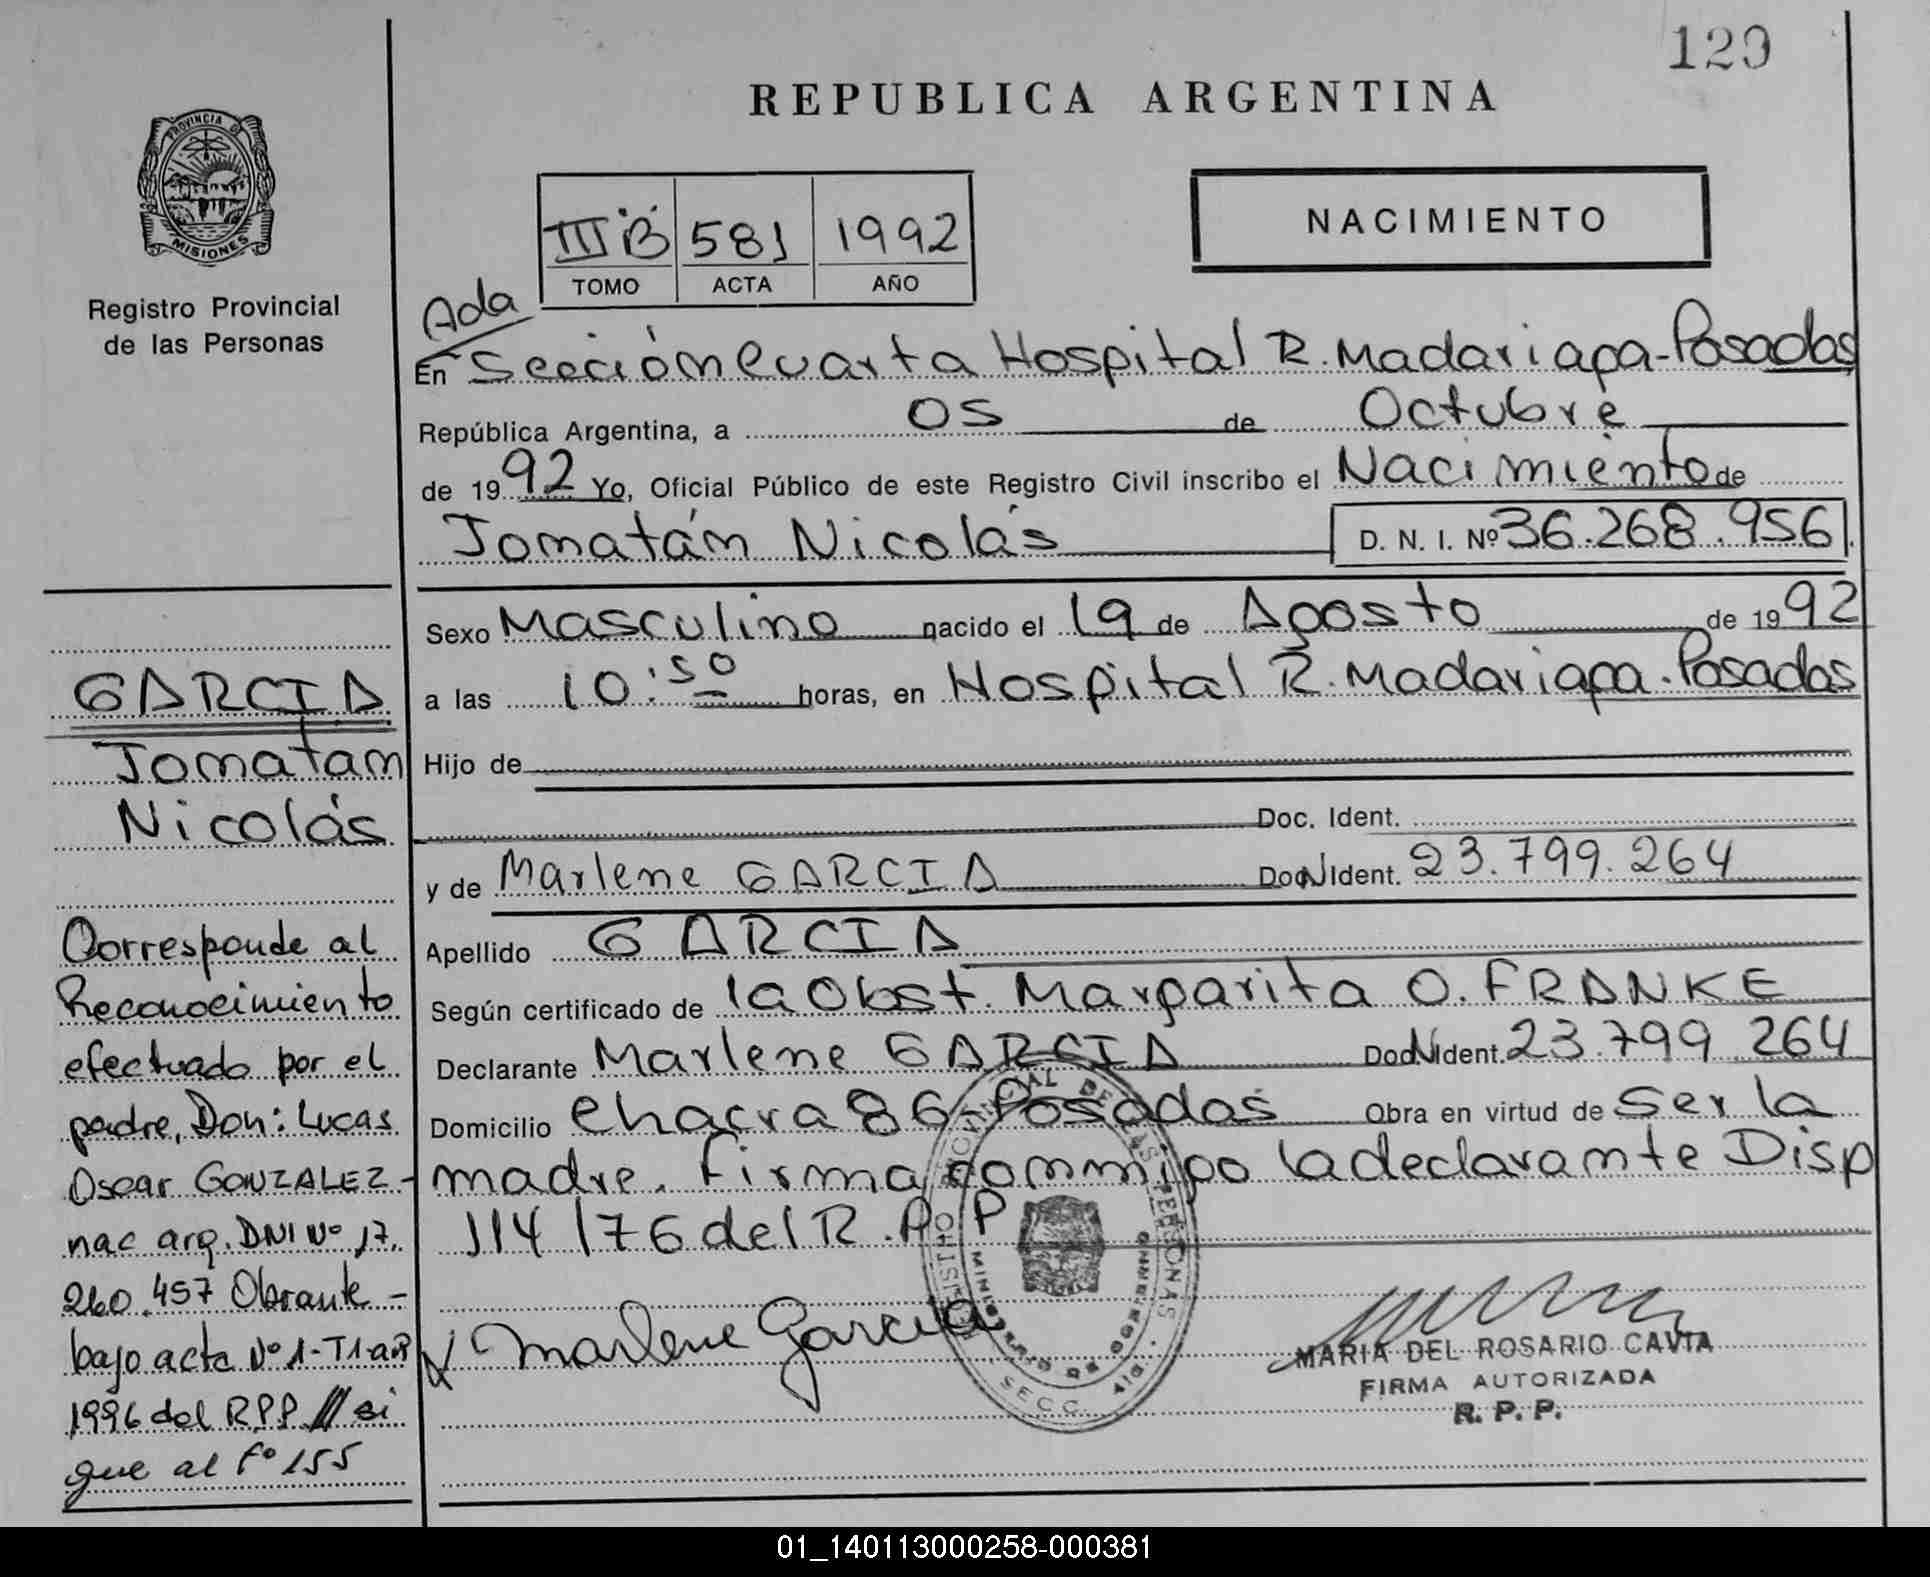 129
REPUBLICA ARGENTINA
PROVINCIA DE
MISIONES
Registro Provincial
de las Personas
III B 581 1992
TOMO ACTA AÑO
NACIMIENTO
Ada
En Sección Cuarta Hospital R. Madariaga - Posadas
República Argentina, a 05 de Octubre
de 1992 Yo, Oficial Público de este Registro Civil inscribo el Nacimiento de
Jonatán Nicolás D. N. I. Nº 36.268.956
Sexo Masculino nacido el 19 de Agosto de 1992
a las 10:50 horas, en Hospital R. Madariaga - Posadas
Hijo de
Doc. Ident.
y de Marlene GARCIA Doc. Ident. 23.799.264
Apellido GARCIA
Según certificado de la Obst. Margarita O. FRANKE
Declarante Marlene GARCIA Doc. Ident. 23.799 264
Domicilio Chacra 86 Posadas Obra en virtud de Ser la
madre. Firma conmigo la declarante Disp
114/76 del R.P.P
Marlene Garcia
MARIA DEL ROSARIO CAVIA
FIRMA AUTORIZADA
R. P. P.
REGISTRO PROVINCIAL DE LAS PERSONAS
MINISTERIO DE GOBIERNO
SECC.
GARCIA
Jonatan
Nicolás
Corresponde al
Reconocimiento
efectuado por el
padre, Don: Lucas
Oscar GONZALEZ-
nac arg. DNI Nº 17.
260.457 Obrante -
bajo acta Nº 1-T1-
1996 del R.P.P. si
gue al Fº 155
01_140113000258-000381